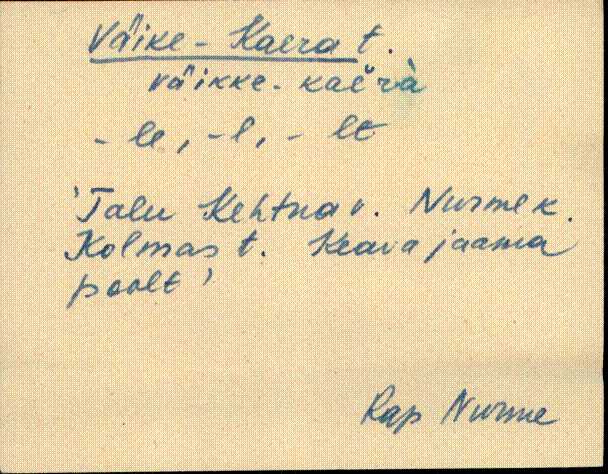 Väike-Kaera t.
väikke-kaerà
-le, -l, - lt
'Talu Kehtna v. Nurme k.
Kolmas t. Keava jaama
poolt'
Rap Nurme